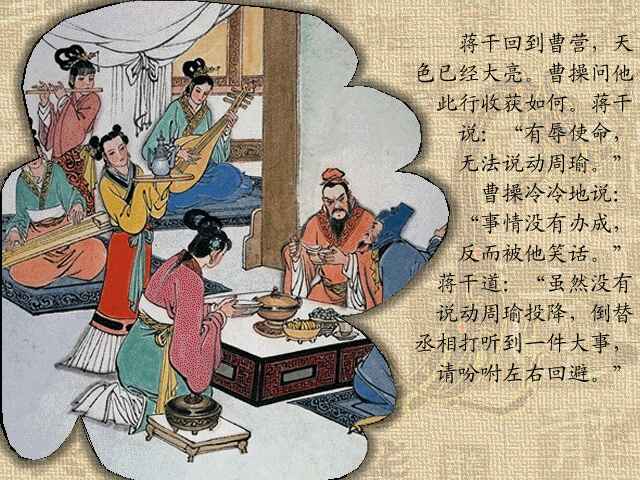 蒋干回到曹营，天
色已经大亮。曹操问他
此行收获如何。蒋干
说：“有辱使命，
无法说动周瑜。”
曹操冷冷地说：
“事情没有办成，
反而被他笑话。”
蒋干道：“虽然没有
说动周瑜投降，倒替
丞相打听到一件大事，
请吩咐左右回避。”